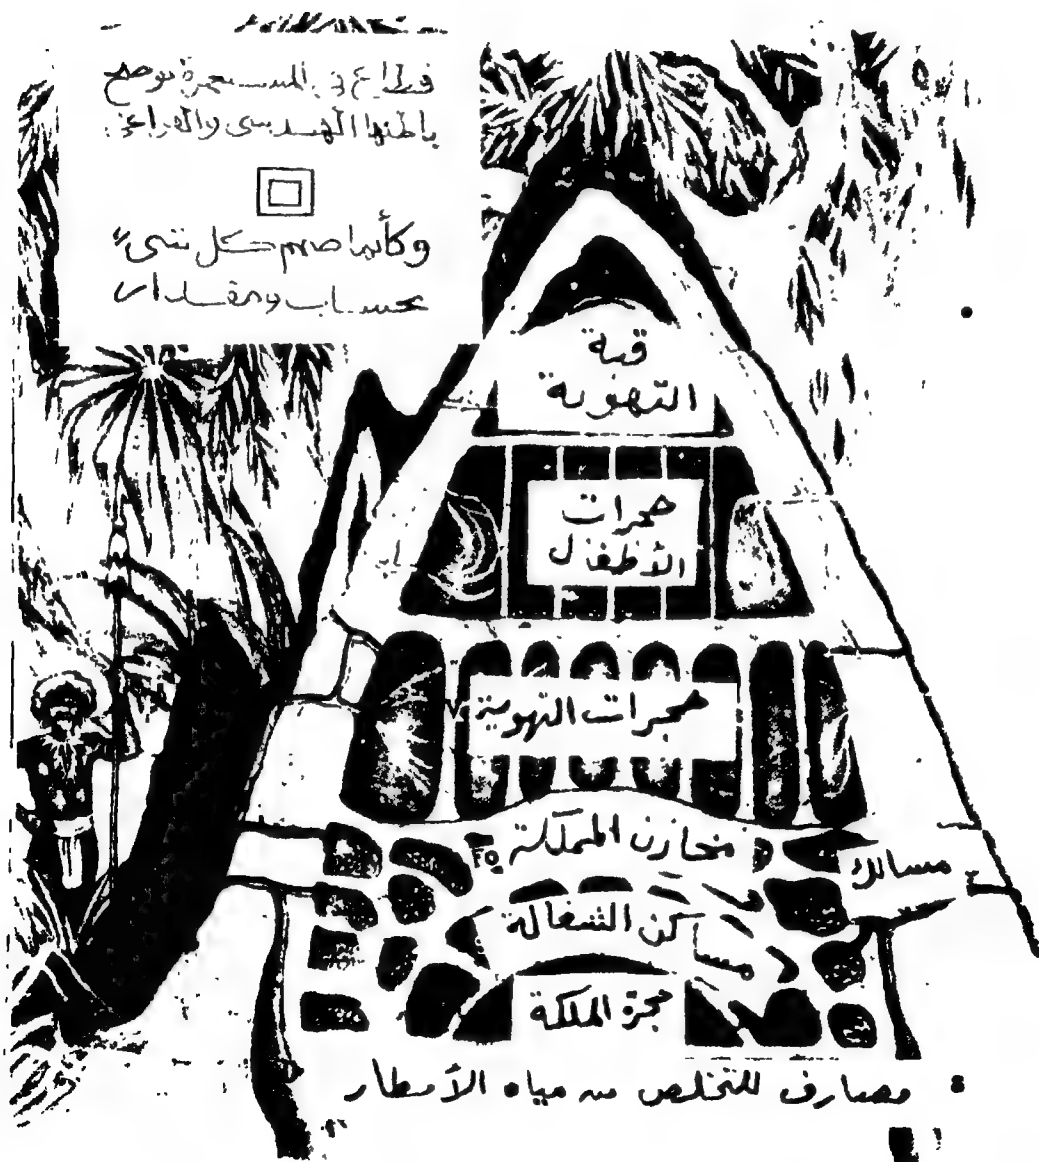 قطاع في المستعمرة يوضح
باطنها الهندسي والفراغي
وكأنما صمم كل شيء
بحساب ومقدار
قبة
التهوية
حجرات
الأطفال
حجرات التهوية
مخازن المملكة
مسالك
مساكن الشغالة
حجرة الملكة
مصارف للتخلص من مياه الأمطار